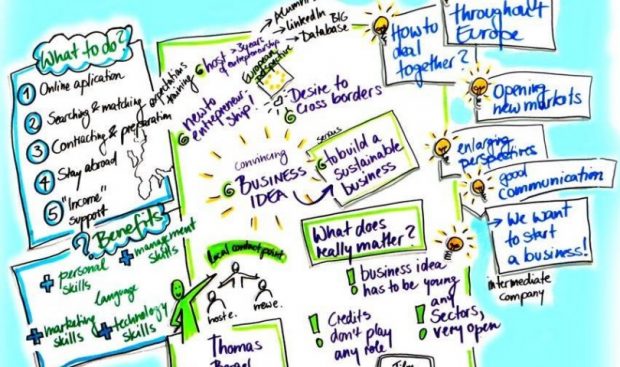 What to do?
1 Online aplication
2 Searching & matching
3 Contracting & preparation
4 Stay abroad
5 "Income"
support
Benefits
+ personal
skills
+ management
skills
Language
+ marketing
skills
+ technology
skills
Alumni
LinkedIn
Database
BIG
host >3 years
of entrepreneurship
European
perspective
expectations
training
new to
entrepreneur
ship!
Desire to
cross borders
convincing
BUSINESS
IDEA
serious
to build a
sustainable
business
How to
deal
together?
throughout
Europe
Opening
new markets
enlarging
perspectives
good
communication
→ We want
to start
a business!
intermediate
company
What does
really matter?
! business idea
has to be young
! Credits
don't play
any role
! any
Sectors,
very open
local contact point
host e.
new e.
Thomas